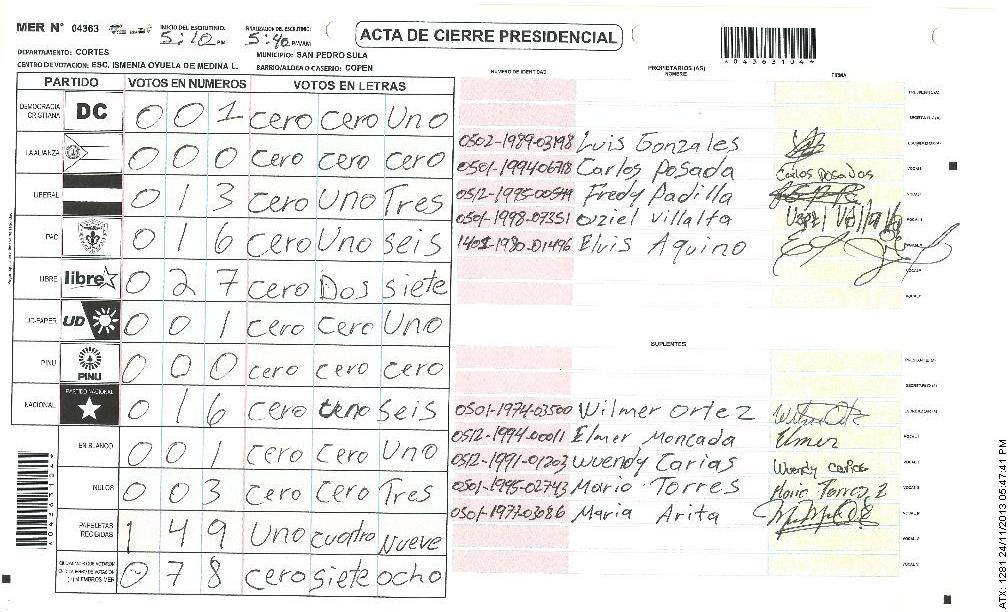 MER N° 04363 INICIO DEL ESCRUTINIO: 5:10 PM FINALIZACION DEL ESCRUTINIO: 5:40 PM/AM ACTA DE CIERRE PRESIDENCIAL
*04363104*
DEPARTAMENTO: CORTES MUNICIPIO: SAN PEDRO SULA
CENTRO DE VOTACION: ESC. ISMENIA OYUELA DE MEDINA L. BARRIO/ALDEA O CASERIO: COPEN
NUMERO DE IDENTIDAD PROPIETARIOS (AS) NOMBRE FIRMA
PARTIDO VOTOS EN NUMEROS VOTOS EN LETRAS
DEMOCRACIA CRISTIANA DC 0 0 1 cero cero Uno
LA ALIANZA 0 0 0 cero cero cero
LIBERAL 0 1 3 cero Uno Tres
PAC 0 1 6 cero Uno seis
LIBRE libre 0 2 7 cero Dos siete
UD-FAPER UD 0 0 1 cero cero Uno
PINU PINU 0 0 0 cero cero cero
NACIONAL PARTIDO NACIONAL 0 1 6 cero uno seis
EN BLANCO 0 0 1 cero cero Uno
NULOS 0 0 3 cero cero Tres
PAPELETAS RECIBIDAS 1 4 9 Uno cuatro Nueve
0 7 8 cero siete ocho
0502-1989-03198 Luis Gonzales
0501-1994-06718 Carlos Posada Carlos Posadas
Fredy Padilla
0501-1998-09351 Oziel Villalta
1401-1980-01496 Elvis Aquino
SUPLENTES
0501-1974-03500 Wilmer Ortez
0512-1994-00011 Elmer Moncada Elmer
0512-1991-01203 Wuendy Carias Wuendy Carias
0501-1995-02743 Mario Torres Mario Torres Z
0501-1977-03086 Maria Arita
*04363104*
ATX: 1281 24/11/2013 05:47:41 PM